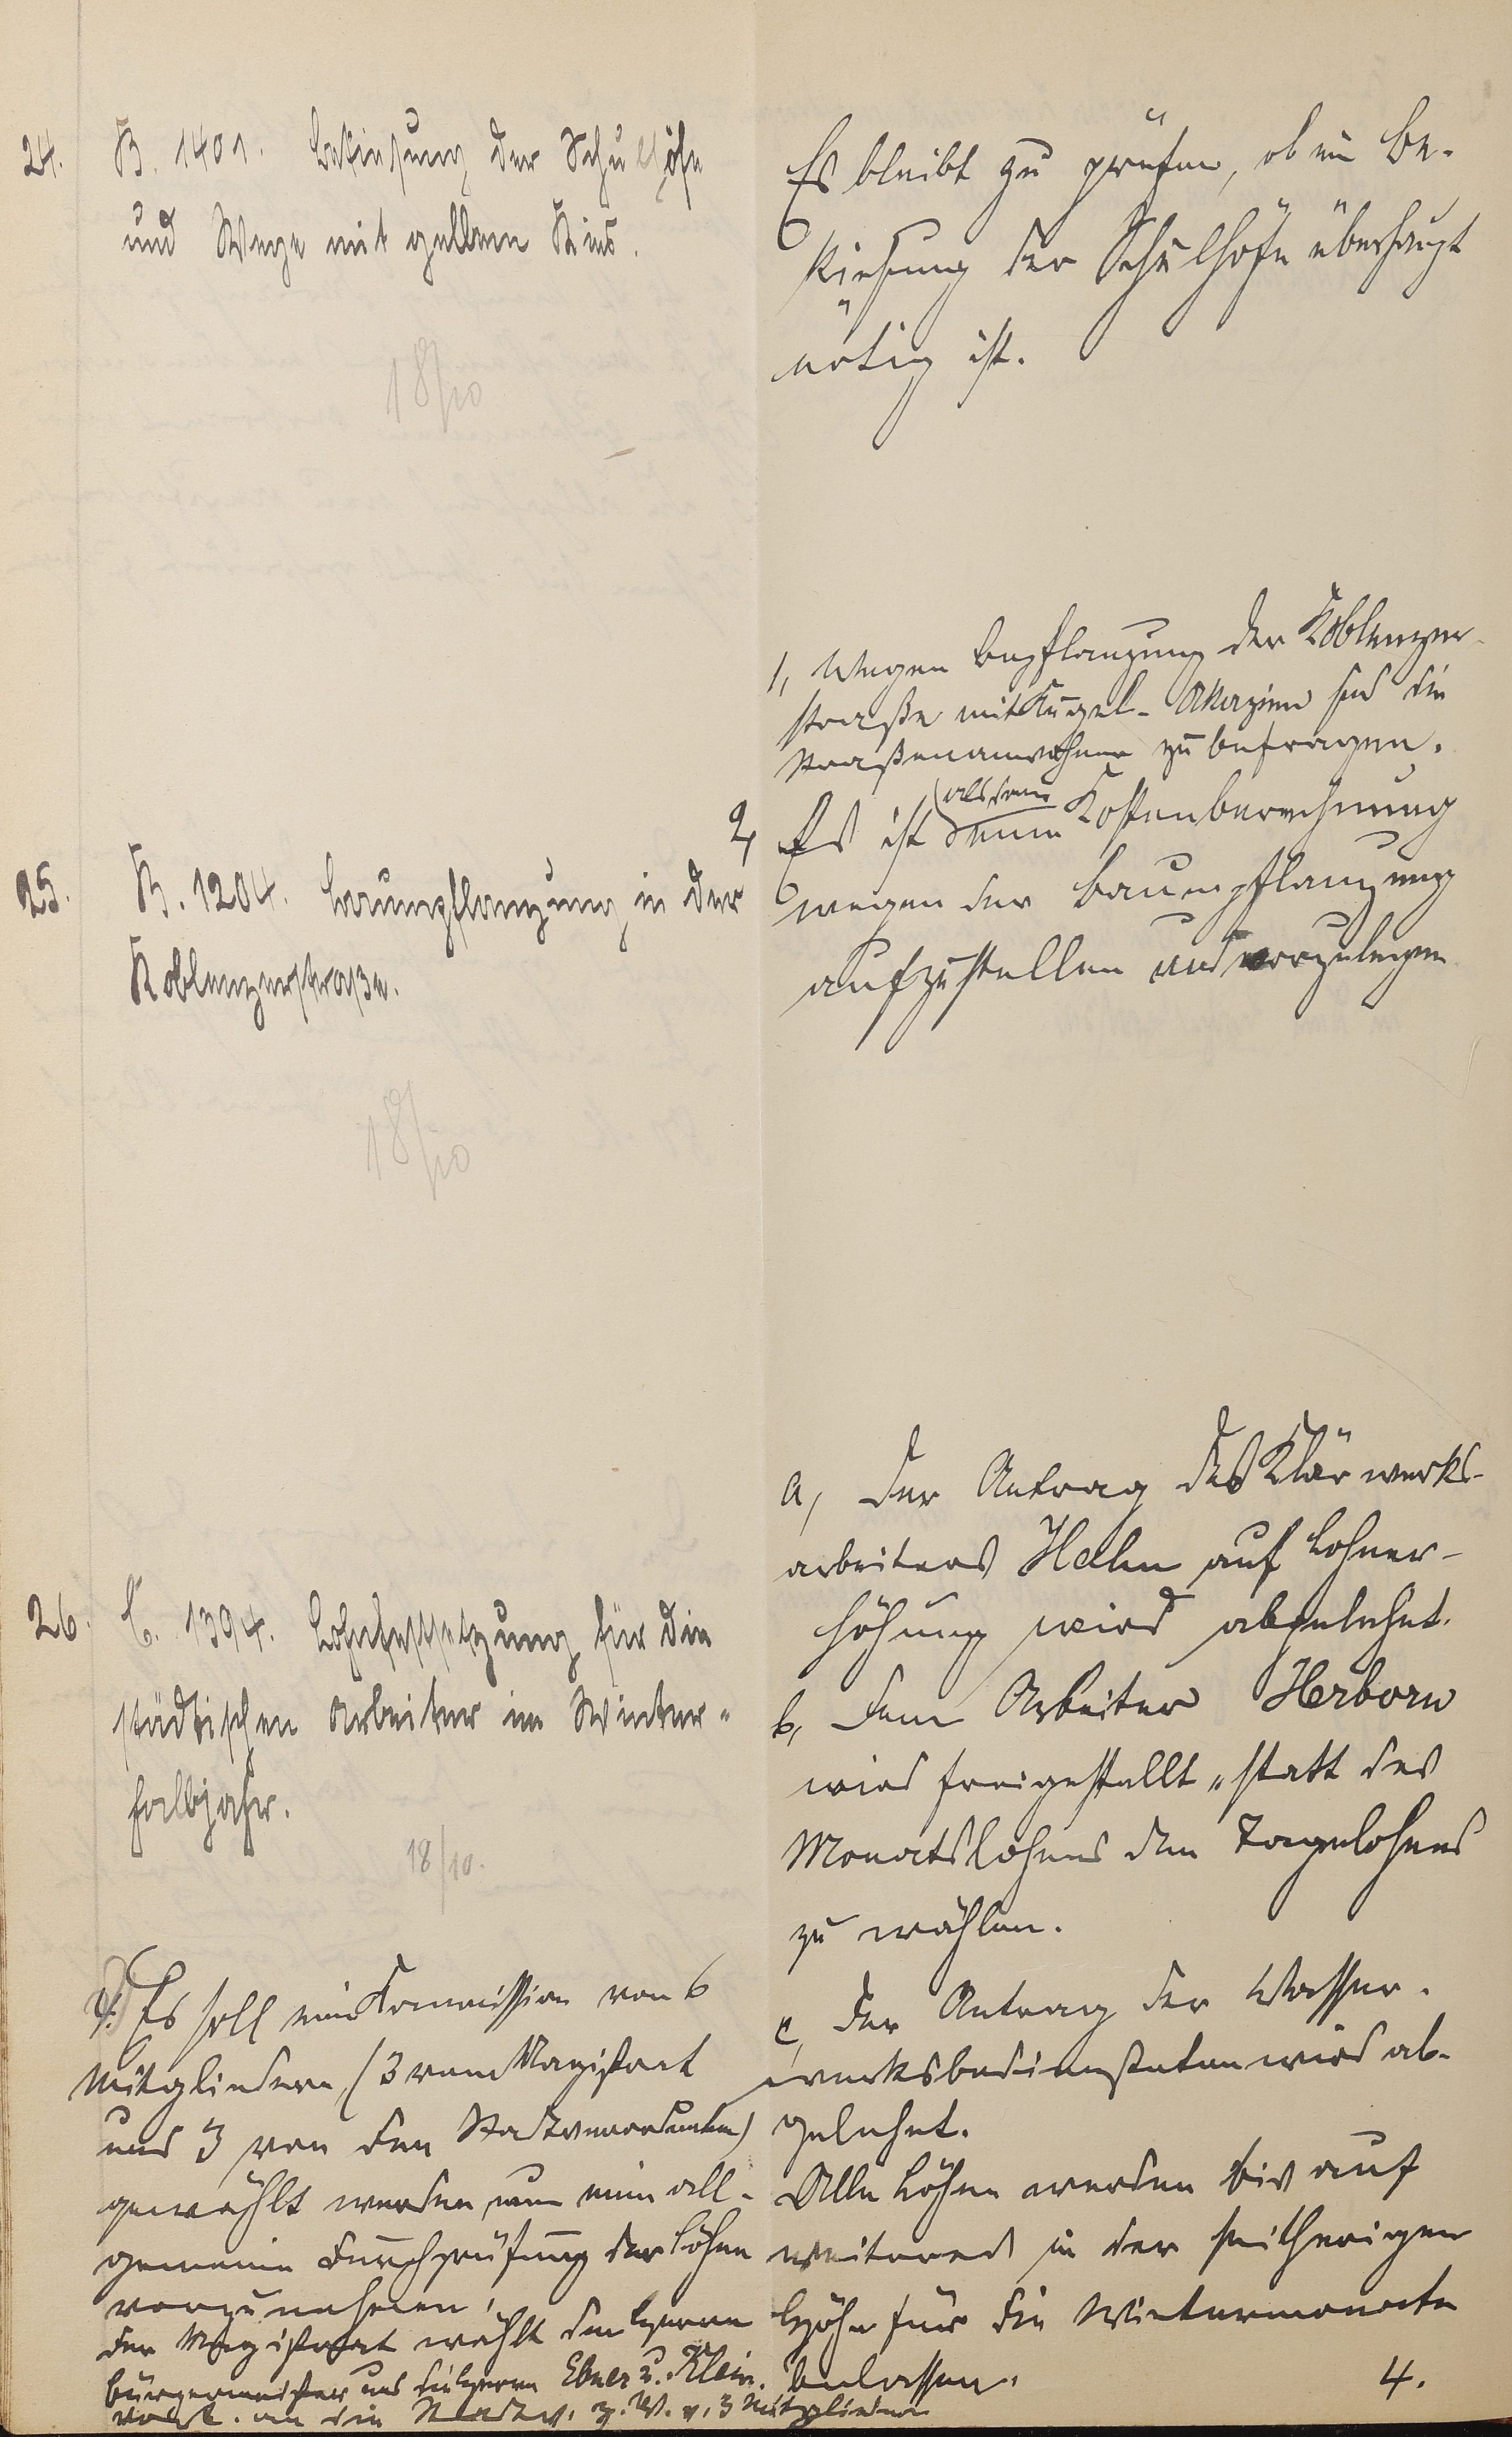 24. B. 1401. Bekiesung der Schulhöfe
und Wege mit gelbem Kies.
18/10
Es bleibt zu prüfen, ob eine Be-
kiesung der Schulhöfe überhaupt
nötig ist.
25. B. 1204. Baumpflanzung in der
Koblenzerstraße.
18/10
1, Wegen Bepflanzung der Koblenzer-
straße mit Kugel-Akazien sind die
Straßenanwohner zu befragen.
2, Es ist (alsdann eine Kostenberechnung
wegen der Baumpflanzung
aufzustellen und vorzulegen
26. C. 1394. Lohnfestsetzung für die
städtischen Arbeiter im Winter-
halbjahr.
18/10.
a, Der Antrag des Klärwerks-
arbeiters Halm auf Lohner-
höhung wird abgelehnt.
b, Dem Arbeiter Herborn
wird freigestellt, statt des
Monatslohnes den Tagelohnes
zu wählen.
c, Der Antrag der Wasser-
werksbediensteten wird ab-
gelehnt.
Alle Löhne werden bis auf
weiteres in der seitherigen
Höhe für die Wintermonate
belassen.
4.
4. Es soll eine Kommission von 6
Mitgliedern, (3 vom Magistrat
und 3 von den Stadtverordneten)
gewählt werden, um eine all-
gemeine Durchprüfung der Löhne
vorzunehmen,
Der Magistrat wählt den Herrn
Bürgermeister und die Herren Ebner u. Klein.
Vorl. an die Stadtv. z. W. v. 3 Mitgliedern